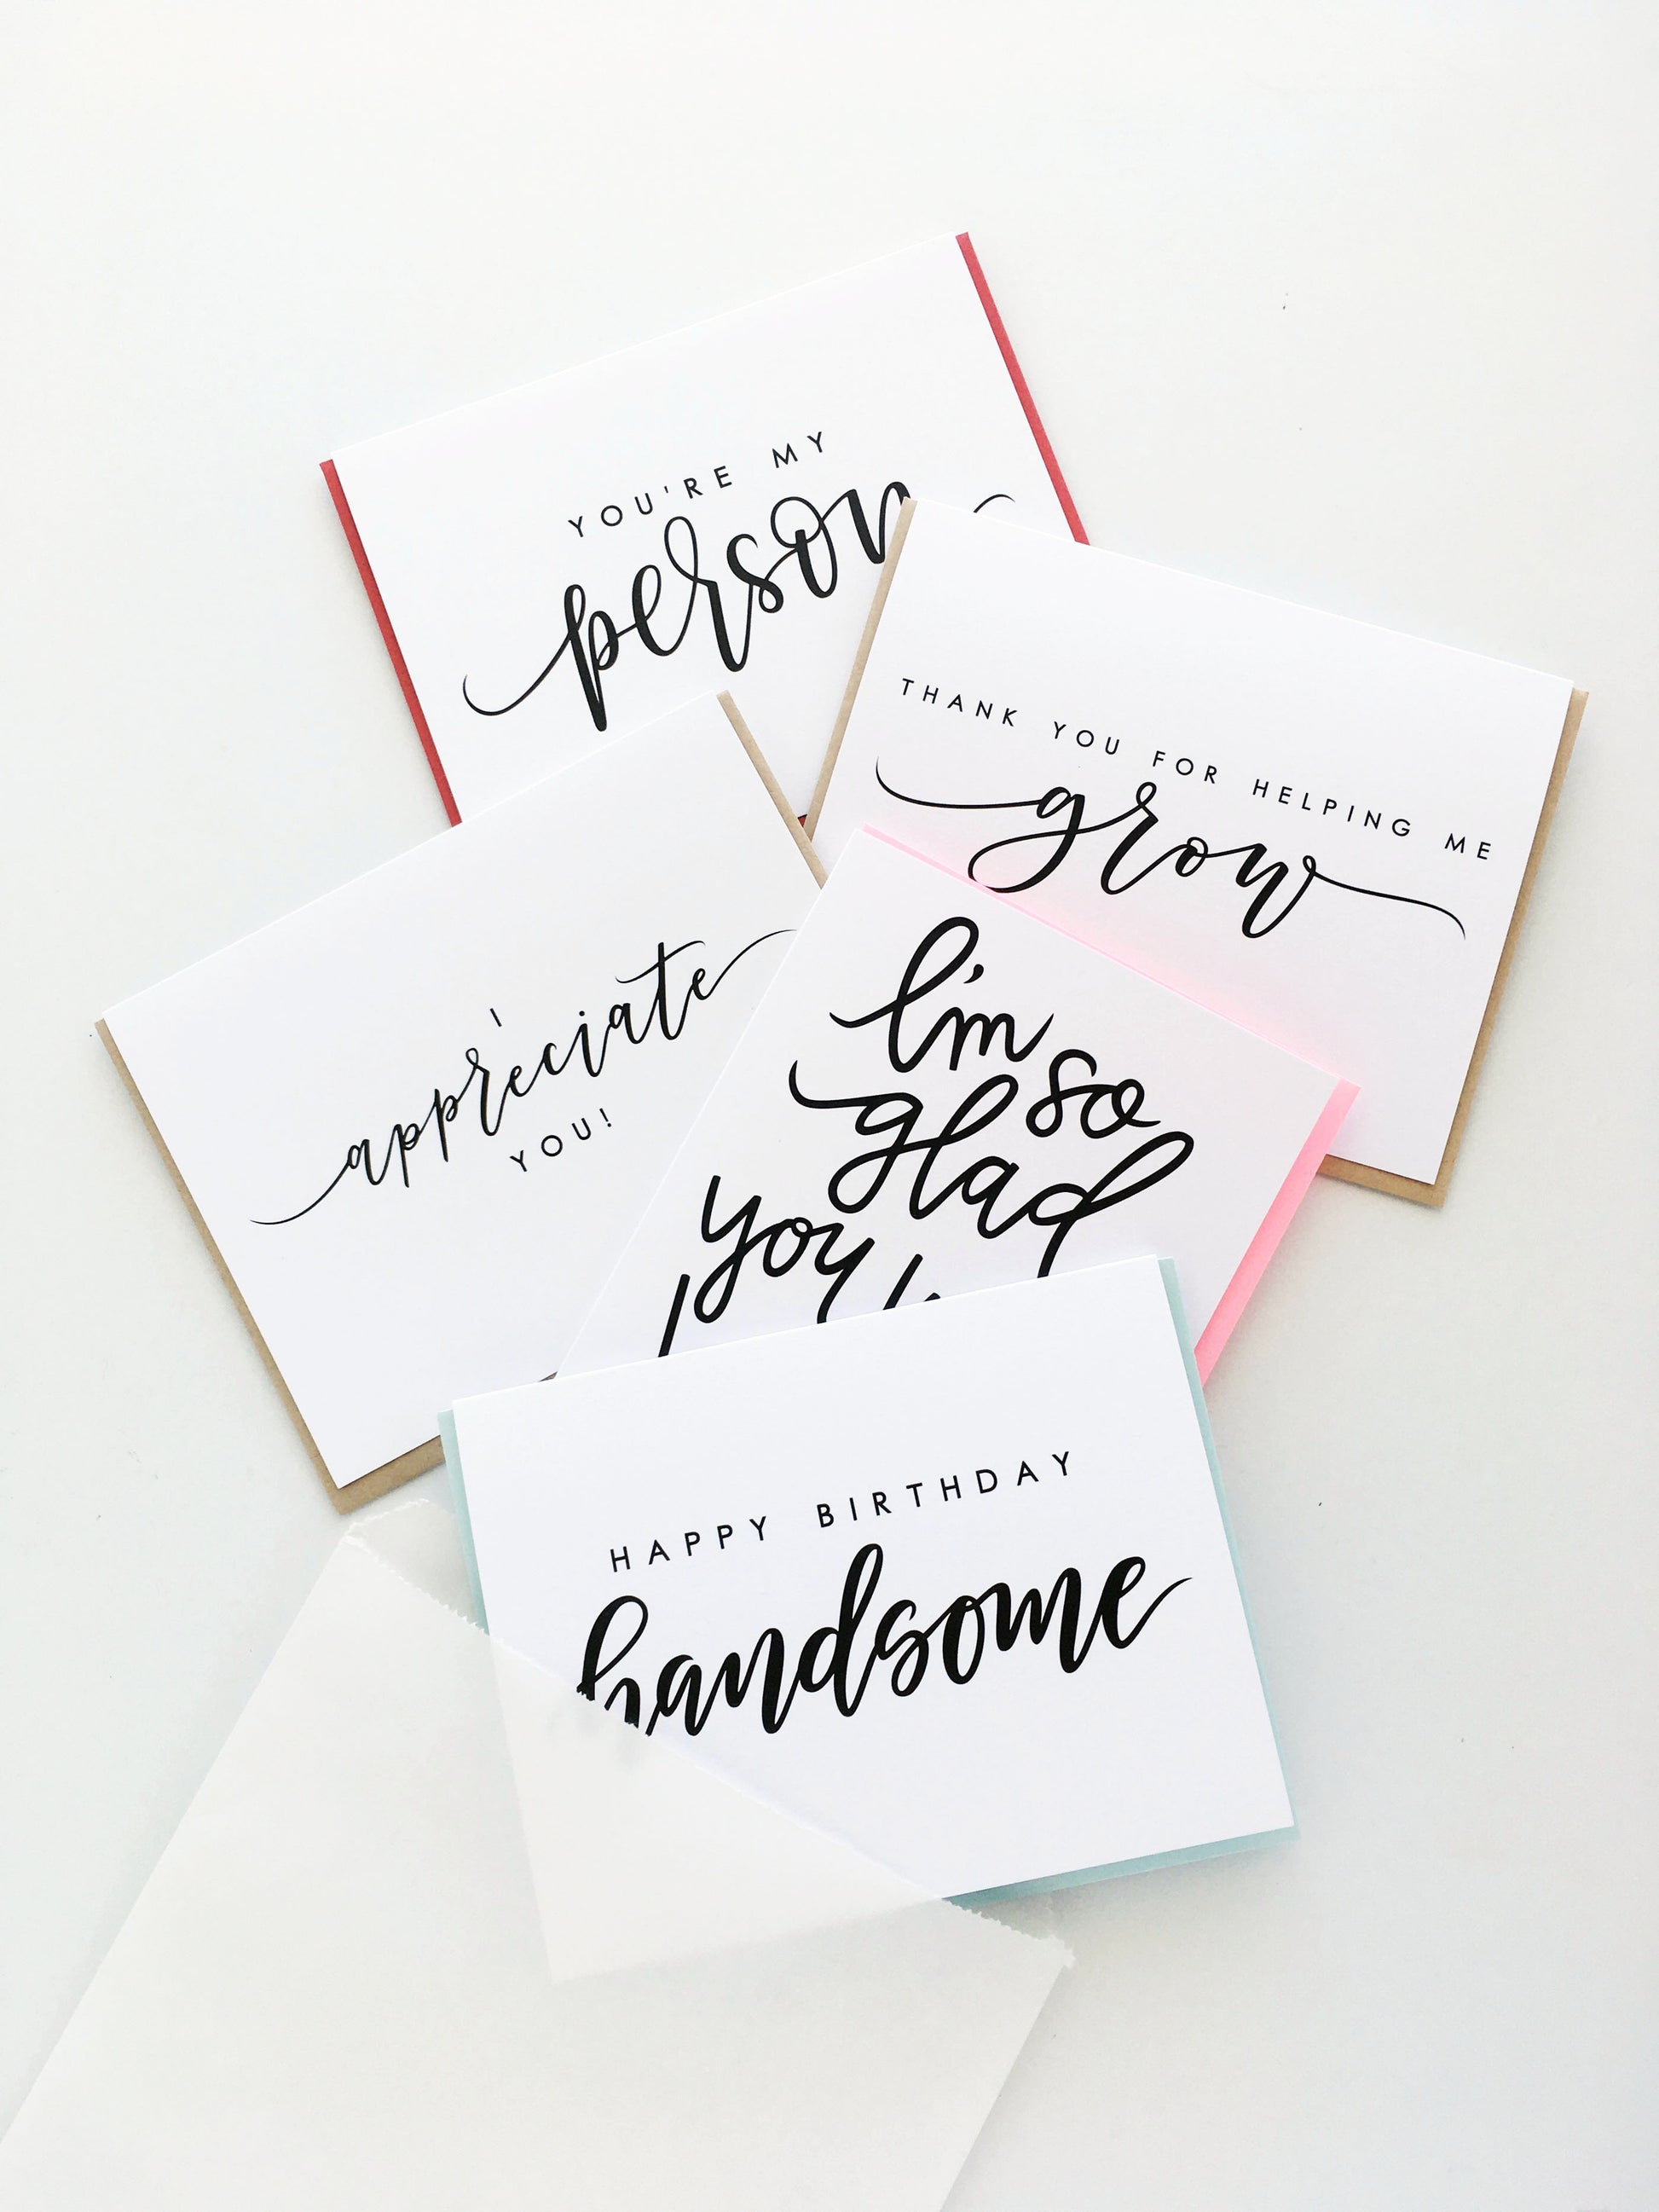 YOU'RE MY
person
THANK YOU FOR HELPING ME
grow
I
appreciate
YOU!
I'm so
glad
you
HAPPY BIRTHDAY
handsome